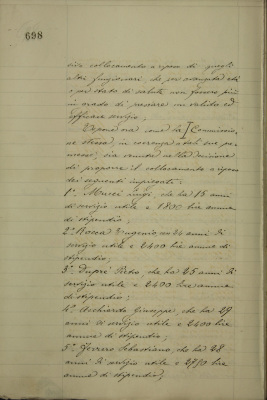 698
collocamento a riposo di quegli
altri funzionari che per avanzata età
e per stato di salute non fossero più
in grado di prestare un valido ed
efficace servizio;
Espone ora come la Commissione,
stessa, in coerenza a tale sua pre
messa, sia venuta nella decisione
di proporre il collocamento a riposo
dei seguenti impiegati:
1º. Mucci Luigi che ha 18 anni
di servizio utile e 1800 lire annue
di stipendio;
2º. Rocca Eugenio con 24 anni di
servizio utile e 2400 lire annue di
stipendio;
3º. Dupré Pietro, che ha 25 anni di
servizio utile e 2400 lire annue
di stipendio;
4º. Acchiardi Giuseppe, che ha 29
anni di servizio utile e 2400 lire
annue di stipendio;
5º. Ferrero Sebastiano, che ha 28
anni di servizio utile e lire
annue di stipendio;